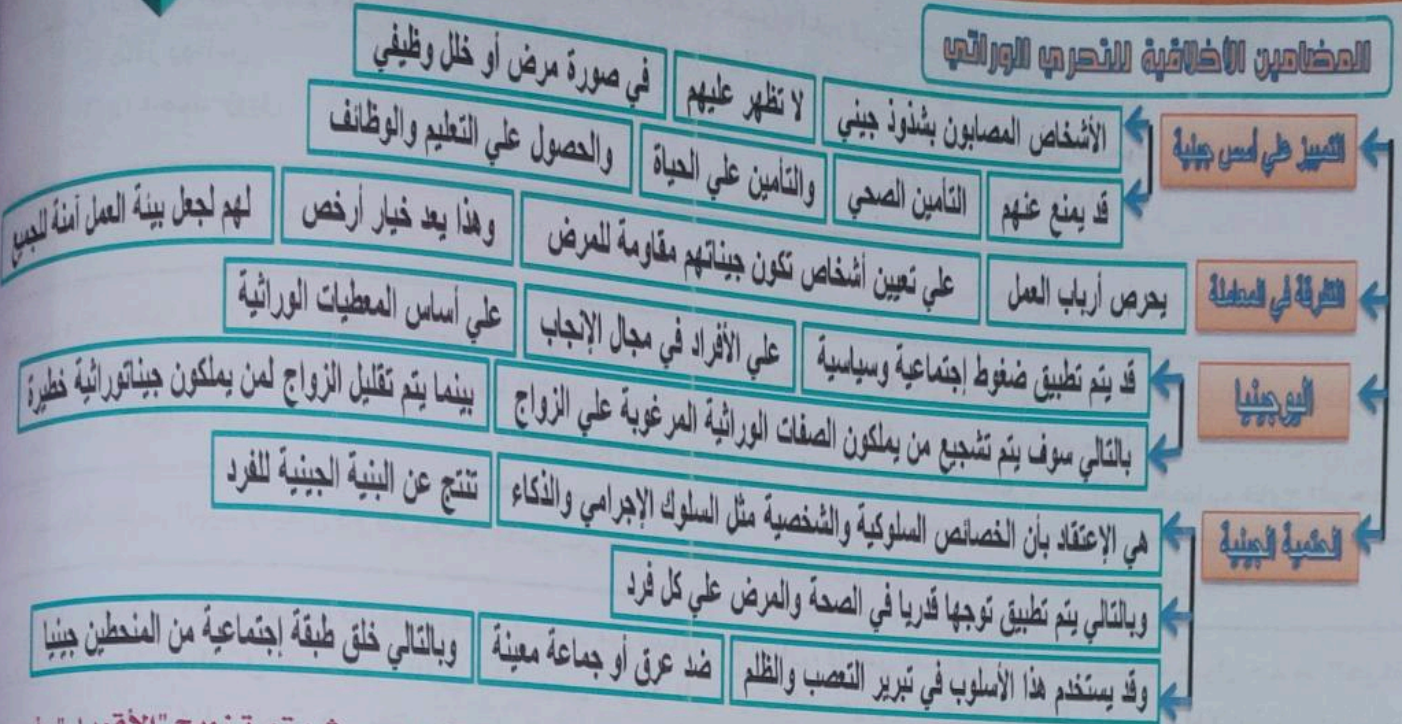 المضامين الأخلاقية للتحري الوراثي
التمييز علي أسس جينية
الأشخاص المصابون بشذوذ جيني لا تظهر عليهم في صورة مرض أو خلل وظيفي
قد يمنع عنهم التأمين الصحي والتأمين علي الحياة والحصول علي التعليم والوظائف
التفرقة في المعاملة
يحرص أرباب العمل علي تعيين أشخاص تكون جيناتهم مقاومة للمرض وهذا يعد خيار أرخص لهم لجعل بيئة العمل آمنة للجميع
اليوجينيا
قد يتم تطبيق ضغوط إجتماعية وسياسية علي الأفراد في مجال الإنجاب علي أساس المعطيات الوراثية
بالتالي سوف يتم تشجيع من يملكون الصفات الوراثية المرغوبة علي الزواج بينما يتم تقليل الزواج لمن يملكون جيناتوراثية خطيرة
الحتمية الجينية
هي الإعتقاد بأن الخصائص السلوكية والشخصية مثل السلوك الإجرامي والذكاء تنتج عن البنية الجينية للفرد
وبالتالي يتم تطبيق توجها قدريا في الصحة والمرض علي كل فرد
وقد يستخدم هذا الأسلوب في تبرير التعصب والظلم ضد عرق أو جماعة معينة وبالتالي خلق طبقة إجتماعية من المنحطين جينيا